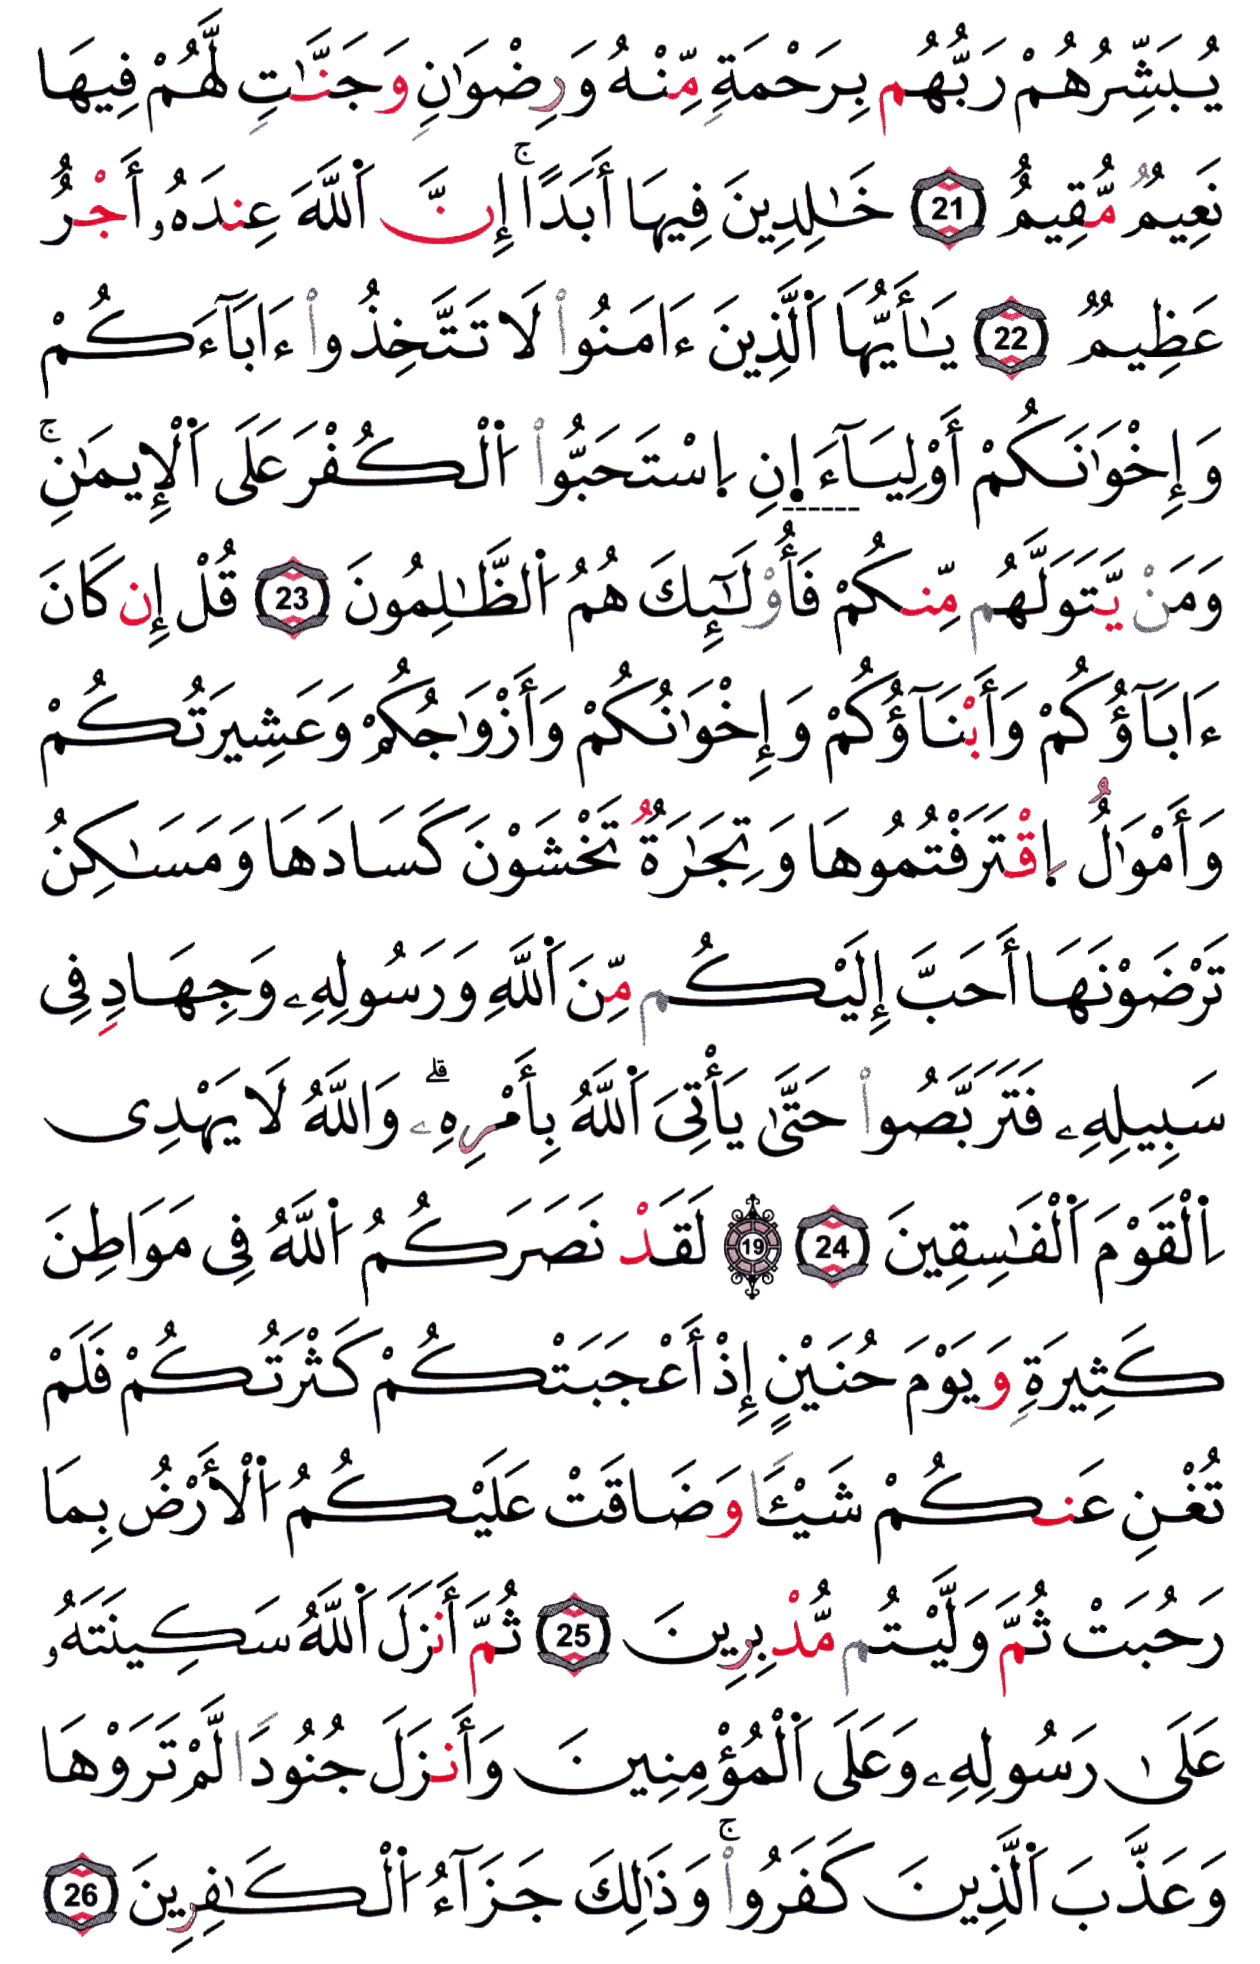 يُبَشِّرُهُمْ رَبُّهُم بِرَحْمَةٍ مِّنْهُ وَرِضْوَٰنٍ وَجَنَّـٰتٍ لَّهُمْ فِيهَا
نَعِيمٌ مُّقِيمٌ 21 خَـٰلِدِينَ فِيهَا أَبَدًا ۚ إِنَّ اَ۬للَّهَ عِندَهُۥ أَجْرٌ
عَظِيمٌ 22 يَـٰأَيُّهَا اَ۬لَّذِينَ ءَامَنُواْ لَا تَتَّخِذُواْ ءَابَآءَكُمْ
وَإِخْوَٰنَكُمْ أَوْلِيَآءَ اِ۪نِ اِ۪سْتَحَبُّواْ اُ۬لْكُفْرَ عَلَى اَ۬لْإِيمَـٰنِ ۚ
وَمَنْ يَّتَوَلَّهُم مِّنكُمْ فَأُوْلَـٰٓئِكَ هُمُ اُ۬لظَّـٰلِمُونَ 23 قُلْ إِن كَانَ
ءَابَآؤُكُمْ وَأَبْنَآؤُكُمْ وَإِخْوَٰنُكُمْ وَأَزْوَٰجُكُمْ وَعَشِيرَتُكُمْ
وَأَمْوَٰلٌ اِ۪قْتَرَفْتُمُوهَا وَتِجَـٰرَةٌ تَخْشَوْنَ كَسَادَهَا وَمَسَـٰكِنُ
تَرْضَوْنَهَا أَحَبَّ إِلَيْكُم مِّنَ اَ۬للَّهِ وَرَسُولِهِۦ وَجِهَادٍ فِى
سَبِيلِهِۦ فَتَرَبَّصُواْ حَتَّىٰ يَأْتِىَ اَ۬للَّهُ بِأَمْرِهِۦ ۗ وَاللَّهُ لَا يَهْدِى
اِ۬لْقَوْمَ اَ۬لْفَـٰسِقِينَ 24 19 لَقَدْ نَصَرَكُمُ اُ۬للَّهُ فِى مَوَاطِنَ
كَثِيرَةٍ وَيَوْمَ حُنَيْنٍ إِذْ أَعْجَبَتْكُمْ كَثْرَتُكُمْ فَلَمْ
تُغْنِ عَنكُمْ شَيْـًٔا وَضَاقَتْ عَلَيْكُمُ اُ۬لْأَرْضُ بِمَا
رَحُبَتْ ثُمَّ وَلَّيْتُم مُّدْبِرِينَ 25 ثُمَّ أَنزَلَ اَ۬للَّهُ سَكِينَتَهُۥ
عَلَىٰ رَسُولِهِۦ وَعَلَى اَ۬لْمُؤْمِنِينَ وَأَنزَلَ جُنُودًا لَّمْ تَرَوْهَا
وَعَذَّبَ اَ۬لَّذِينَ كَفَرُواْ ۚ وَذَٰلِكَ جَزَآءُ اُ۬لْكَـٰفِرِينَ 26